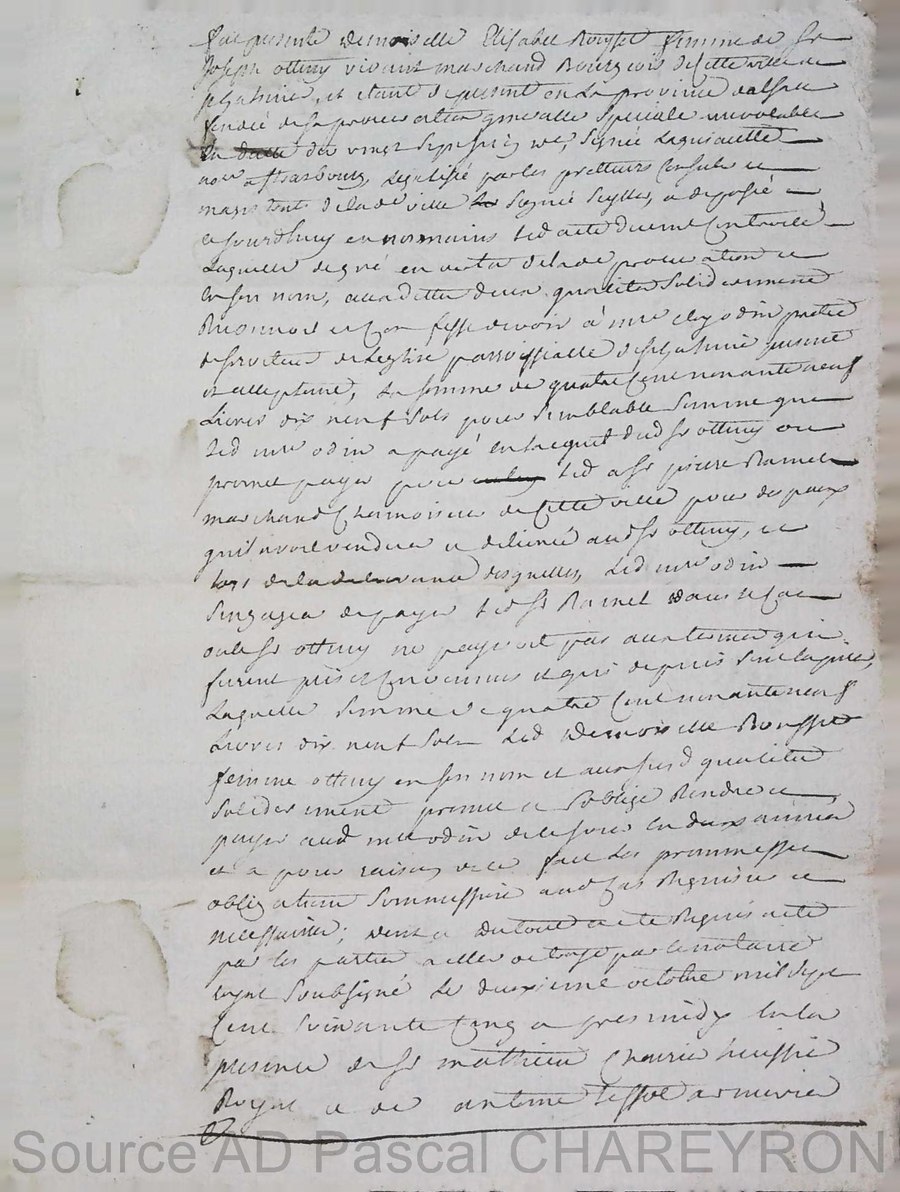 fut presente demoiselle Elisabet Rousset femme de Sr
Joseph ottiny vivant marchand Bourgeois de cette ville de
et etant de present en la province dalsace
fondée de sa procuration generalle Speciale irrevocable
du vingt Signé Laquiantte
nore a strasbourg, Legalisé par les pretteurs Consuls et
magistrats de lade ville Signée a deposé
ce jourdhuy en nos mains led acte duement Controllé
Laquelle de gré en vertu de lade procuration et
en son nom, aux dittes deux qualités Solidairement
Reconnoit et Confesse devoir à mre odin pretre
de service de Leglise parroissialle de present
et acceptant, La somme de quatre Cent nonante neuf
Livres dix neuf Sols pour Semblable Somme que
led mre odin a payé en lacquit dud Sr ottiny ou
promet payer pour led a Sr pierre Ramel
marchand Chamoiseur de Cette ville pour des peaux
quil avoit vendues et delivrés aud Sr ottiny, et
lors de la delivrance desquelles, Led mre odin
Sengagea de payer led Sr Ramel dans le Cas
ou le Sr ottiny ne payeroit pas aux termes qui
furent pris et Convenus et qui depuis Sont expirés,
Laquelle Somme de quatre Cent nonante neuf
Livres dix neuf Sols Lad demoiselle Rousset
femme ottiny en son nom et auxsusd qualités
Solidairement promet et Soblige Rendre et
payer aud mre odin de ce jour en deux années
et a pour raison de ce fait les prommesses
obligations Soumissions aud Cas Requises et
necessaires; dont et du tout acte Requis acte
par les parties a elles octroyé par le notaire
Royal Soubsigné Le deuxieme octobre mil Sept
Cent Soixante Cinq apres midy en la
presence de Sr mathieu Chourie huissier
Royal et de antoine Tissot armurier
Source AD Pascal CHAREYRON